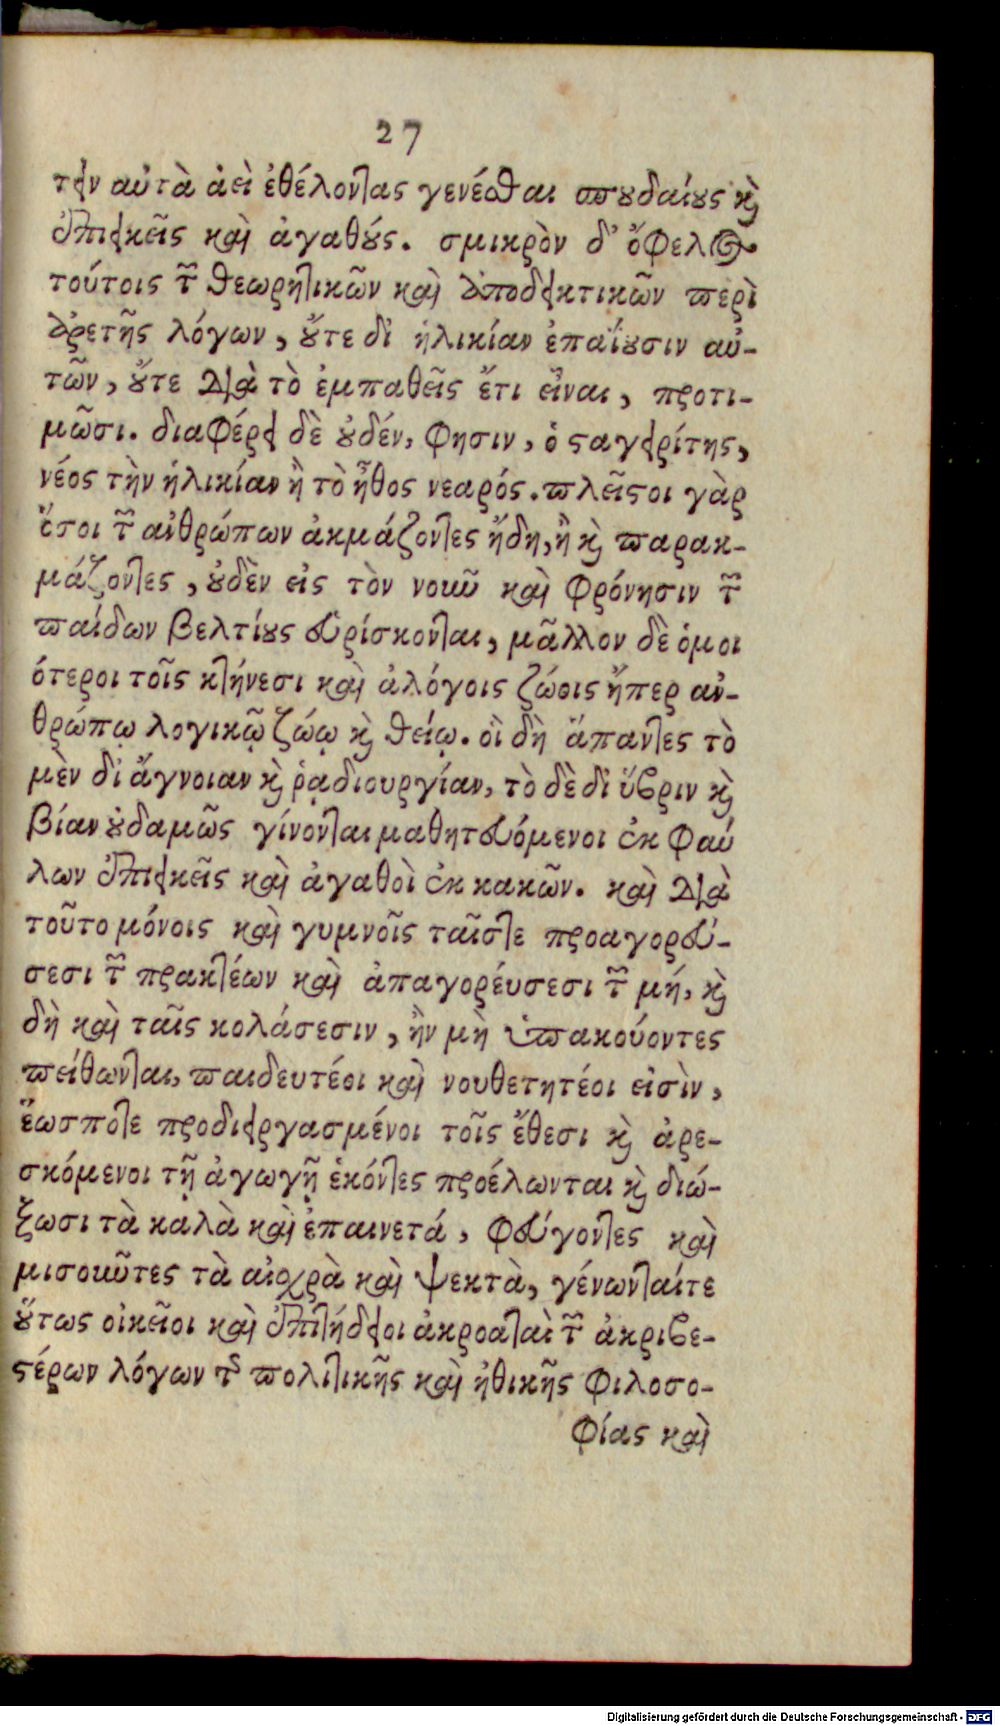 27
τειν αὐτὰ ἀεὶ ἐθέλοντας γενέσθαι σπουδαίους καὶ
ἐπιεικεῖς καὶ ἀγαθούς. σμικρὸν δ' ὄφελος
τούτοις τῶν θεωρητικῶν καὶ ἀποδεικτικῶν περὶ
ἀρετῆς λόγων, οὔτε δι' ἡλικίαν ἐπαΐουσιν αὐ-
τῶν, οὔτε διὰ τὸ ἐμπαθεῖς ἔτι εἶναι, προτι-
μῶσι. διαφέρει δὲ οὐδέν, φησιν, ὁ σταγειρίτης,
νέος τὴν ἡλικίαν ἢ τὸ ἦθος νεαρός. πλεῖστοι γὰρ
ὅσοι τῶν ἀνθρώπων ἀκμάζοντες ἤδη, ἢ καὶ παρακ-
μάζοντες, οὐδὲν εἰς τὸν νοῦν καὶ φρόνησιν τῶν
παίδων βελτίους εὑρίσκονται, μᾶλλον δὲ ὁμοι
ότεροι τοῖς κτήνεσι καὶ ἀλόγοις ζώοις ἤπερ ἀν-
θρώπῳ λογικῷ ζώῳ καὶ θείῳ. οἳ δὴ ἅπαντες τὸ
μὲν δι' ἄγνοιαν καὶ ῥᾳδιουργίαν, τὸ δὲ δι' ὕβριν καὶ
βίαν οὐδαμῶς γίνονται μαθητευόμενοι ἐκ φαύ
λων ἐπιεικεῖς καὶ ἀγαθοὶ ἐκ κακῶν. καὶ διὰ
τοῦτο μόνοις καὶ γυμνοῖς ταῖστε προαγορεύ-
σεσι τῶν πρακτέων καὶ ἀπαγορέυσεσι τῶν μή, καὶ
δὴ καὶ ταῖς κολάσεσιν, ἢν μὴ ὑπακούοντες
πείθωνται, παιδευτέοι καὶ νουθετητέοι εἰσὶν,
ἕωσποτε προδιειργασμένοι τοῖς ἔθεσι καὶ ἀρε-
σκόμενοι τῇ ἀγωγῇ ἑκόντες προέλωνται καὶ διώ-
ξωσι τὰ καλὰ καὶ ἐπαινετά, φεύγοντες καὶ
μισοῦντες τὰ αἰσχρὰ καὶ ψεκτὰ, γένωνταίτε
οὕτως οἰκεῖοι καὶ ἐπιτήδειοι ἀκροαταὶ τῶν ἀκριβε-
στέρων λόγων τῆς πολιτικῆς καὶ ἠθικῆς φιλοσο-
φίας καὶ
Digitalisierung gefördert durch die Deutsche Forschungsgemeinschaft - DFG